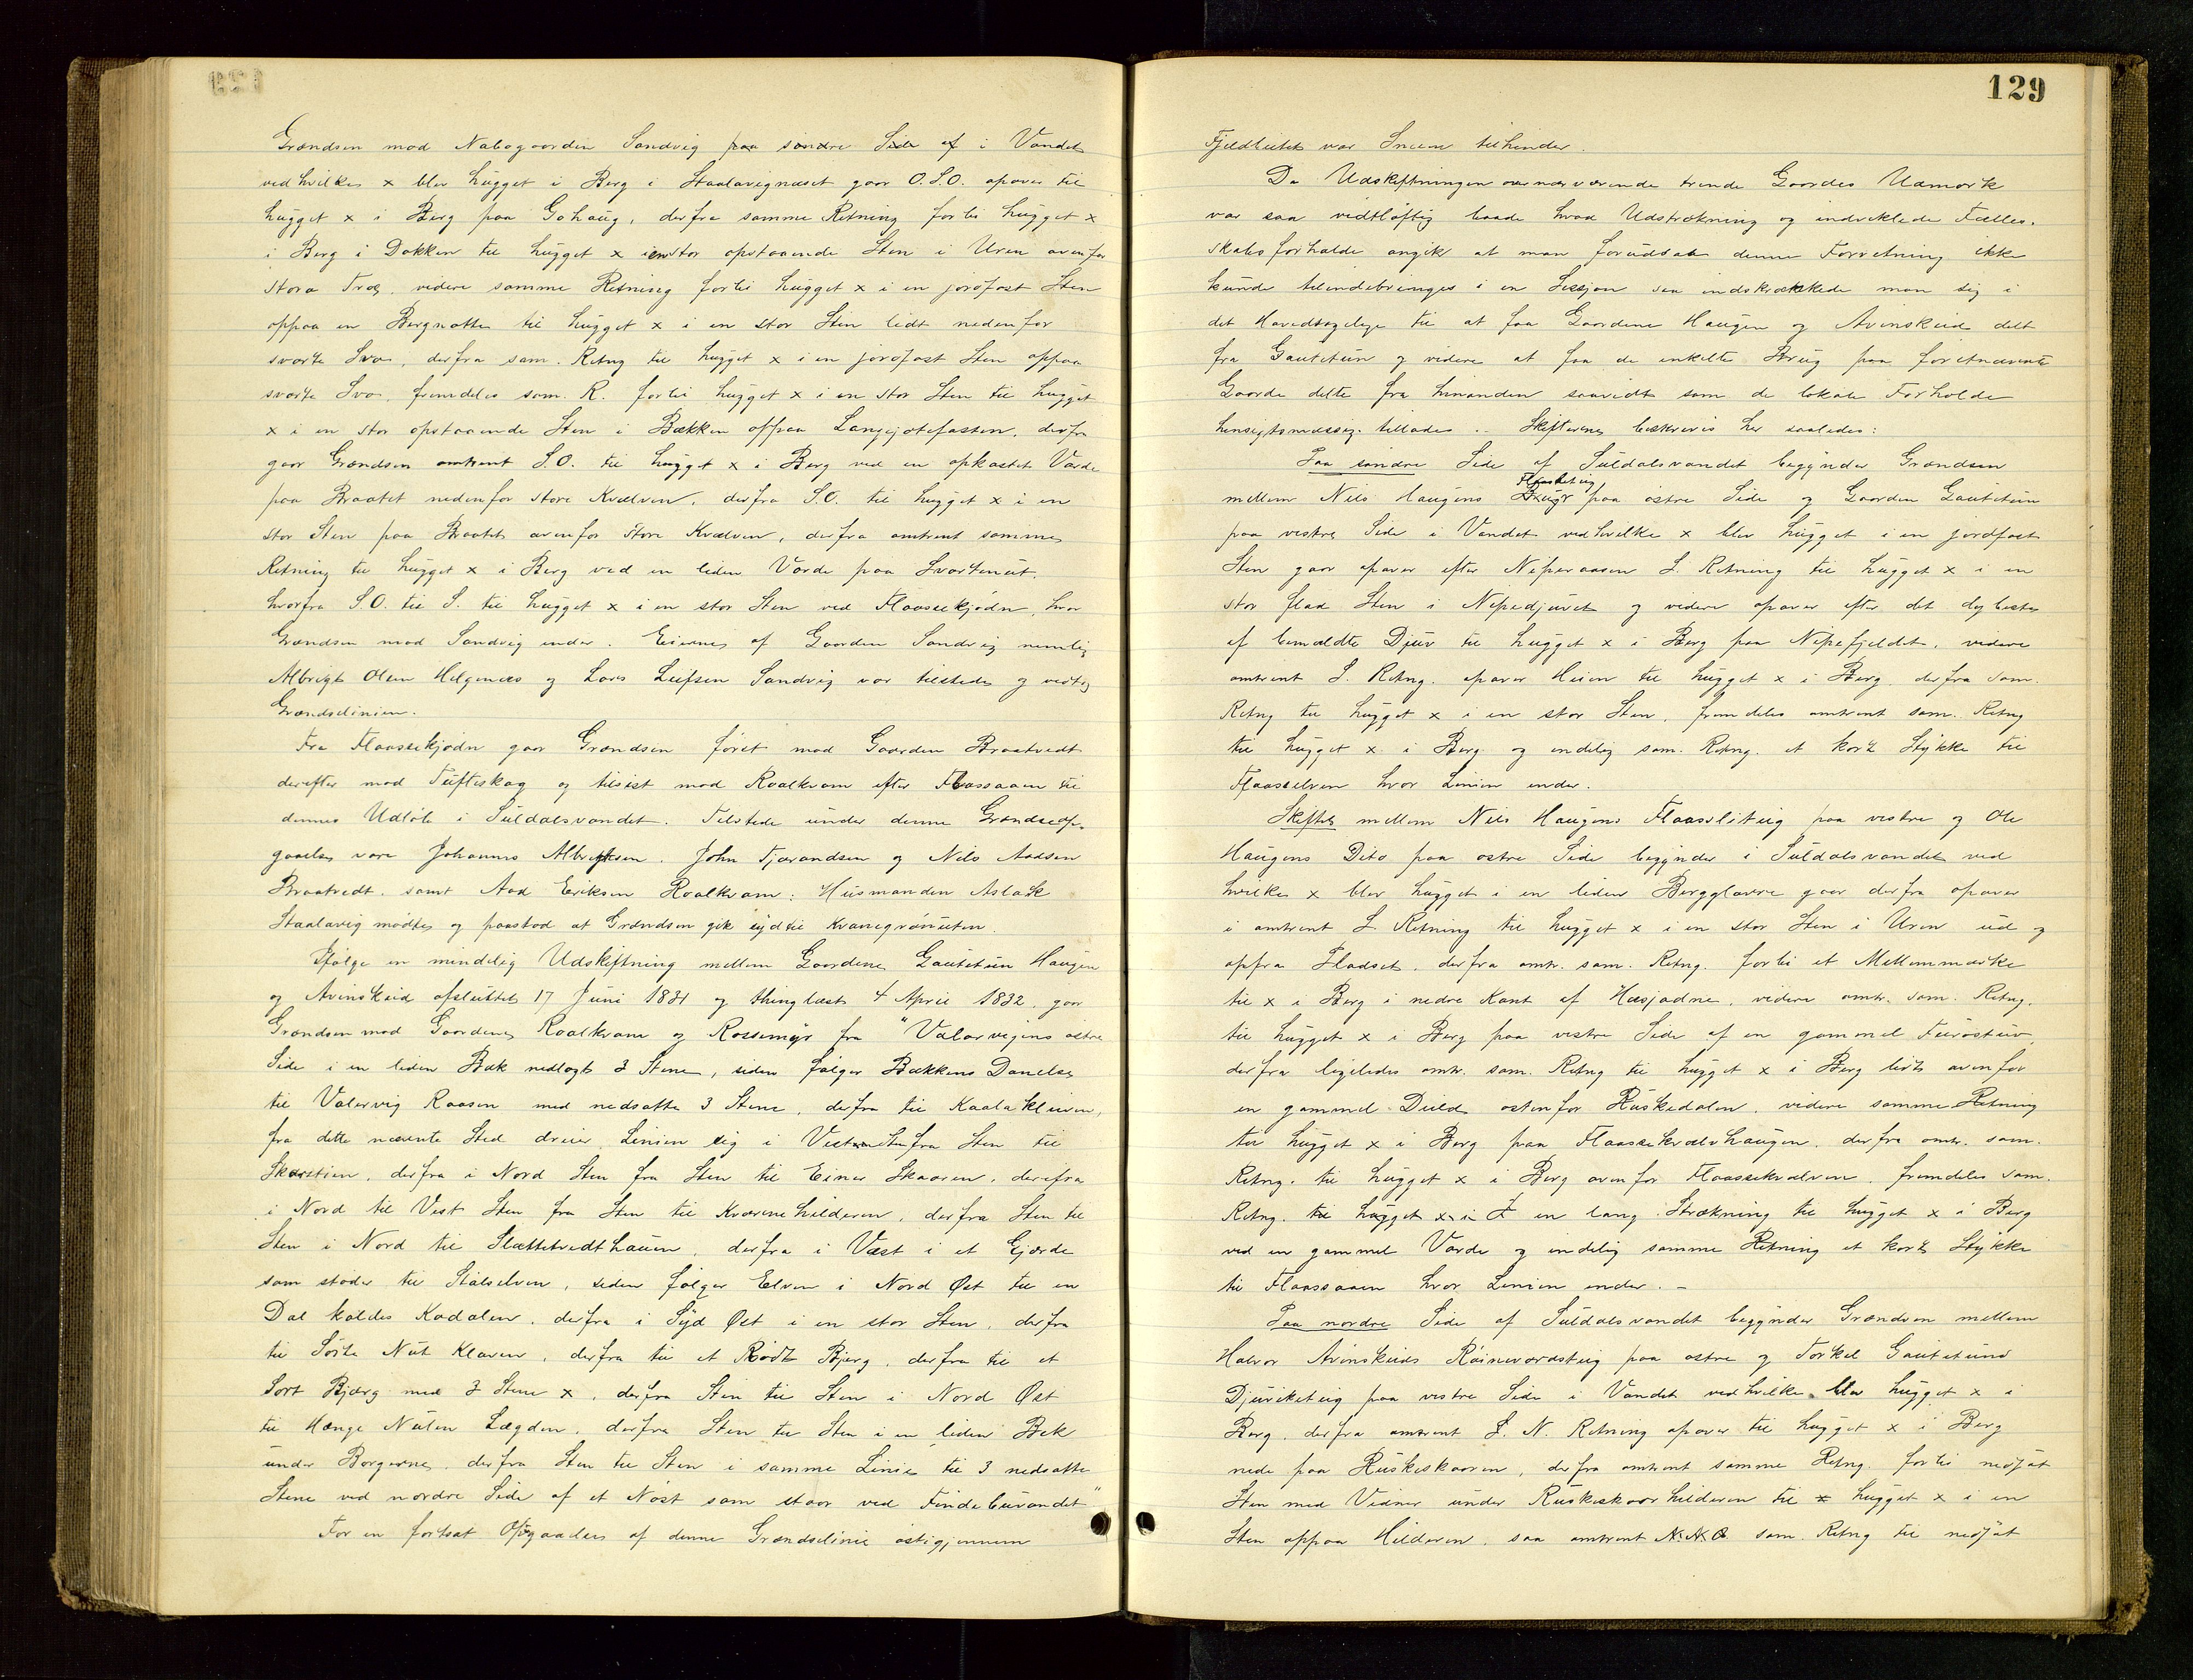 Grændsen mod Nabogaarden Sandvig paa søndre Side af i Vandet
ved hvilket x blev hugget i Berg i Staalavignæset gaar O.S.O. opover til
hugget x i Berg paa Gohaug, derfra samme Retning forbi hugget x
i Berg i Dokken til hugget x i en stor opstaaende Sten i Uren ovenfor
Stora Træ, videre samme Retning forbi hugget x i en jordfast Sten
oppaa en Bergnatte til hugget x i en stor Sten lidt nedenfor
svarte Sva, derfra sam. Retng til hugget x i en jordfast Sten oppaa
svarte Sva, fremdeles sam. R. forbi hugget x i en stor Sten til hugget
x i en stor opstaaende Sten i Bækken oppaa Langjotefasten, derfra
gaar Grændsen omtrent S.O. til hugget x i Berg ved en opkastet Varde
paa Braatet nedenfor store Kvælven, derfra S.O. til hugget x i en
stor Sten paa Braatet ovenfor Store Kvælven, derfra omtrent samme
Retning til hugget x i Berg ved en liden Varde paa Svartenut,
hvorfra S.O. til S. til hugget x i en stor Sten ved Flaassekjødn, hvor
Grændsen mod Sandvig ender. Eierne af Gaarden Sandvig nemlig
Albrigt Olsen Helgenæs og Lars Leifsen Sandvig var tilstede og vedtog
Grændselinien.
Fra Flaassekjødn gaar Grændsen først mod Gaarden Braatvedt
derefter mod Tufteskog og tilsist mod Roalkvam efter Flaassaaen til
dennes Udløb i Suldalsvandet. Tilstede under denne Grændseop-
gaaelse vare Johannes Albrigtsen, John Tjerandsen og Nils Aadsen
Braatvedt, samt Aad Eriksen Roalkvam: Husmanden Aslak
Staalavig mødte og paastod at Grændsen gik syd til Kvanegrønuten.
Ifølge en mindelig Udskiftning mellem Gaardene Gautetun Haugen
og Avinskeid afsluttet 17 Juni 1831 og thinglæst 4 April 1832, gaar
Grændsen mod Gaardene Roalkvam og Rossemyr fra "Valarvigens østre
Side i en liden Bæk nedlagt 3 Stene, siden følger Bækkens Danelse
til Valervig Raasen med nedsatte 3 Stene, derfra til Kaalakleiven,
fra dette nævnte Sted dreier Linien sig i Vest Sten fra Sten til
Skorstien, derfra i Nord Sten fra Sten til Einer Skaaren, derifra
i Nord til Vest Sten fra Sten til Kværnehilderen, derfra Sten til
Sten i Nord til Slættetvedt hauen, derfra i Væst i et Gjærde
som støder til Stølselven, siden følger Elven i Nord Øst til en
Dal kaldes Kadalen, derfra i Syd Øst i en stor Sten, derfra
til Sorte Nut Klaven, derfra til et Rødt Bjerg, derfra til et
Sort Bjærg med 3 Stene x, derfra Sten til Sten i Nord Øst
til Hænge Nuten Lægden, derfra Sten til Sten i en liden Bek
under Borgerne, derfra Sten til Sten i samme Linie til 3 nedsatte
Stene ved nordre Side af et Nøst som staar ved Findebuvandet"
For en fortsat Opgaaelse af denne Grændselinie østigjennem
129
Fjeldvidden var Sneen til hinder.
Da Udskiftningen over nærværende trende Gaardes Udmark
var saa vidtløftig baade hvad Udstrækning og indviklede Fælles-
skabsforholde angik at man forudsaa denne Forretning ikke
kunde tilendebringes i en Session saa indskrækkede man sig i
det Hovedsagelige til at faa Gaardene Haugen og Avinskeid delt
fra Gautetun og videre at faa de enkelte Brug paa førstnævnte
Gaarde delte fra hinanden saavidt som de lokale Forholde
hensigtsmæssig tillades. Skifterne beskrives her saaledes:
Paa søndre Side af Suldalsvandet begynder Grændsen
mellem Nils Haugens Flaasteig paa østre Side og Gaarden Gautetun
paa vestre Side i Vandet ved hvilket x blev hugget i en jordfast
Sten gaar opover efter Niperaasen S. Retning til hugget x i en
stor flad Sten i Nipedjuvet og videre opover efter det dybeste
af bemældte Djuv til hugget x i Berg paa Nipefjeldet, videre
omtrent S. Retng. opover Heien til hugget x i Berg, derfra sam.
Retng til hugget x i en stor Sten, fremdeles omtrent sam. Retng
til hugget x i Berg og endelig sam. Retng. et kort Stykke til
Flaasselven hvor Linien ender.
Skiftet mellem Nils Haugens Flaasliteig paa vestre og Ole
Haugens Dito paa østre Side begynder i Suldalsvandet ved
hvilket x blev hugget i en liden Bergglavve gaar derfra opover
i omtrent S. Retning til hugget x i en stor Sten i Uren ud og
opfra Pladset, derfra omtr. sam. Retng. forbi et Mellemmærke
til x i Berg i nedre Kant af Hæsjadne, videre omtr. sam. Retng.
til hugget x i Berg paa vestre Side af en gammel Furostuv,
derfra ligeledes omtr. sam. Retng til hugget x i Berg lidt ovenfor
en gammel Duld østenfor Ruskedalen, videre samme Retning
til hugget x i Berg paa Flaassekvælvhaugen, derfra omtr. sam.
Retng. til hugget x i Berg ovenfor Flaassekvælven, fremdeles sam.
Retng. til hugget x i en lang Strækning til hugget x i Berg
ved en gammel Varde og endelig samme Retning et kort Stykke
til Flaassaaen hvor Linien ender. –
Paa nordre Side af Suldalsvandet begynder Grændsen mellem
Halvor Avinskeids Røinevardsteig paa østre og Torkel Gautetuns
Djuviketeig paa vestre Side i Vandet ved hvilket blev hugget x i
Berg, derfra omtrent N. Retning opover til hugget x i Berg
nede paa Ruskeskaaren, derfra omtrent samme Retng. forbi nedsat
Sten med Vidner under Ruskeskaarhilderen til hugget x i en
Sten oppaa Hilderen, saa omtrent N.N.O sam. Retng til nedsat